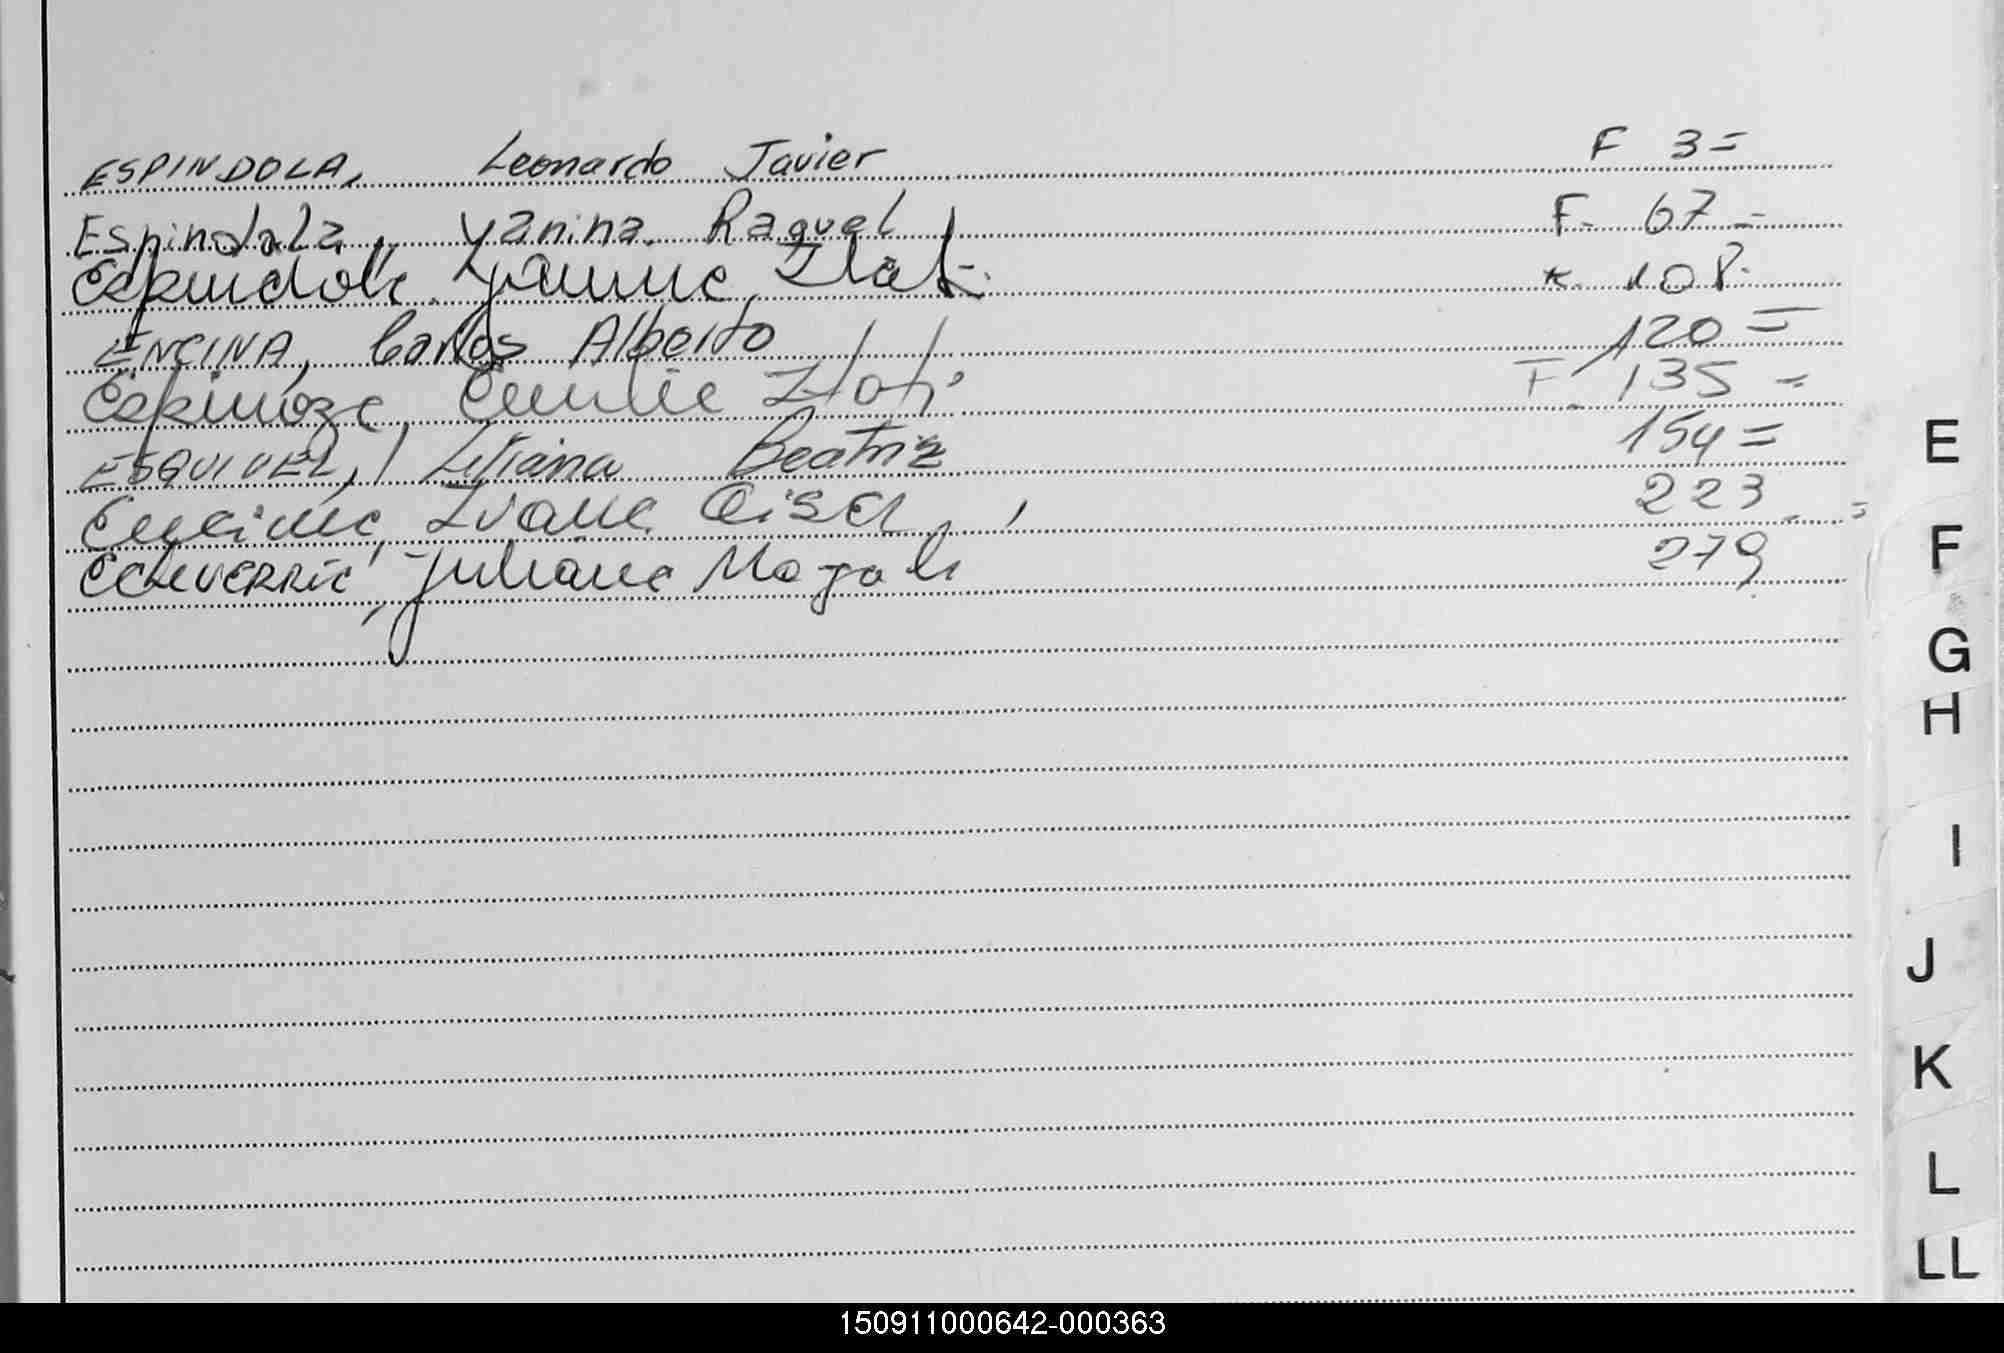 ESPINDOLA, Leonardo Javier F 3=
Espindola, Yanina Raquel F. 67=
Espindola Yanina 108
ENCINA, Carlos Alberto 120=
Espinoza, Emilia F. 135=
ESQUIVEL, Liliana Beatriz 154=
Encina, Ivana Gisel, 223. =
Echeverria, Juliana Magali 279
E
F
G
H
I
J
K
L
LL
150911000642-000363